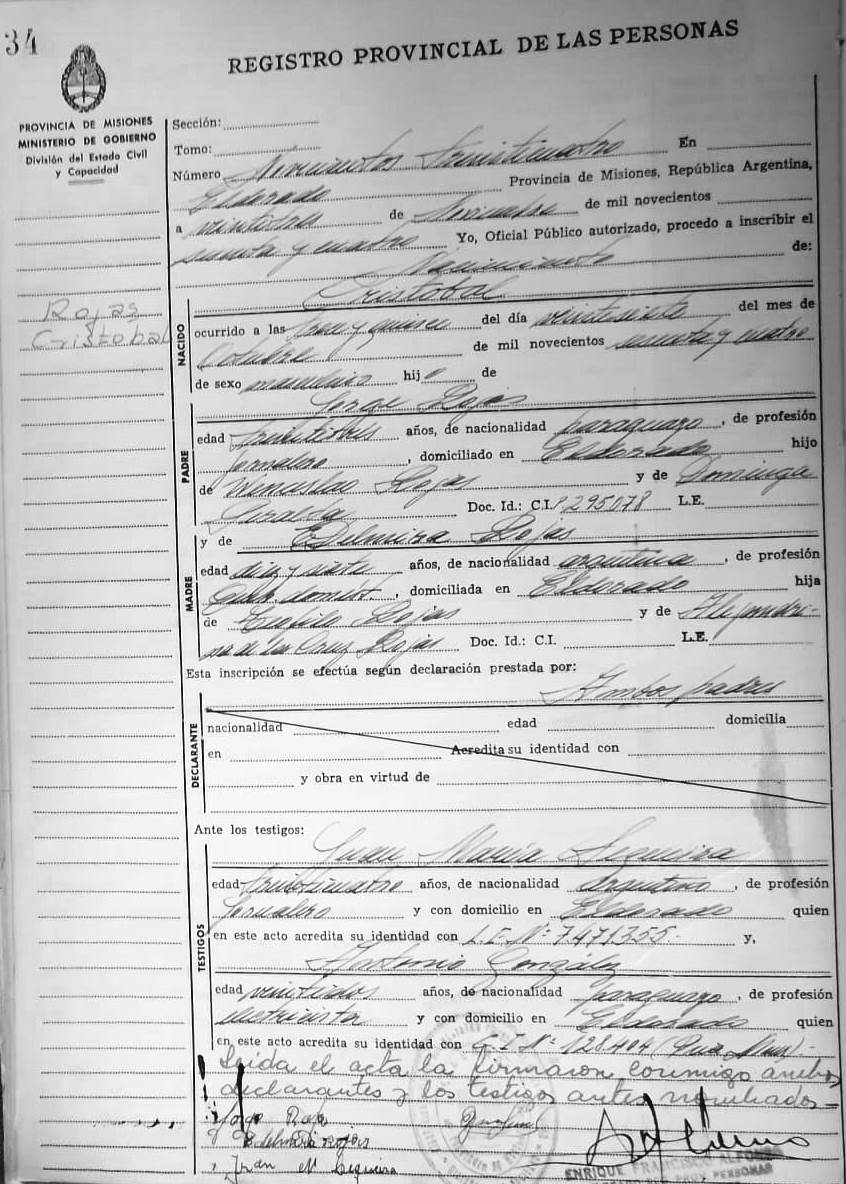 34
REGISTRO PROVINCIAL DE LAS PERSONAS
PROVINCIA DE MISIONES
MINISTERIO DE GOBIERNO
División del Estado Civil
y Capacidad
Rojas
Cristobal
Sección:
Tomo:
Número Novecientos treinticuatro En
Eldorado Provincia de Misiones, República Argentina,
a veintitrés de de mil novecientos
sesenta y cuatro Yo, Oficial Público autorizado, procedo a inscribir el
Nacimiento de:
NACIDO
Cristobal
ocurrido a las trece y quince del día veintisiete del mes de
Octubre de mil novecientos sesenta y cuatro
de sexo masculino hijo de
PADRE
Jorge Rojas
edad treintitrés años, de nacionalidad paraguayo, de profesión
jornalero, domiciliado en Eldorado hijo
de Wenceslao Rojas y de Dominga
Doc. Id.: C.I. 295078 L.E.
MADRE
y de Edelmira Rojas
edad diez y siete años, de nacionalidad argentina, de profesión
Queh. domést., domiciliada en Eldorado hija
de Teófilo Rojas y de Alejandri-
na de la Cruz Rojas Doc. Id.: C.I. L.E.
Esta inscripción se efectúa según declaración prestada por:
Ambos padres
DECLARANTE
nacionalidad edad domicilia
en Acredita su identidad con
y obra en virtud de
Ante los testigos:
TESTIGOS
Juan María Sequeira
edad treinticuatro años, de nacionalidad Argentino, de profesión
Jornalero y con domicilio en Eldorado quien
en este acto acredita su identidad con L.E. Nº 7.471.355.- y,
Antonio González
edad veintidos años, de nacionalidad paraguayo, de profesión
electricista y con domicilio en Eldorado quien
en este acto acredita su identidad con C.I. Nº 128.404 (
Leída el acta la firmaron conmigo ambos
declarantes y los testigos antes nombrados
Jorge Roja
Edelmira rojas
Juan M Sequeira
ENRIQUE FRANCISCO ALFONSO
PROV. PERSONAS